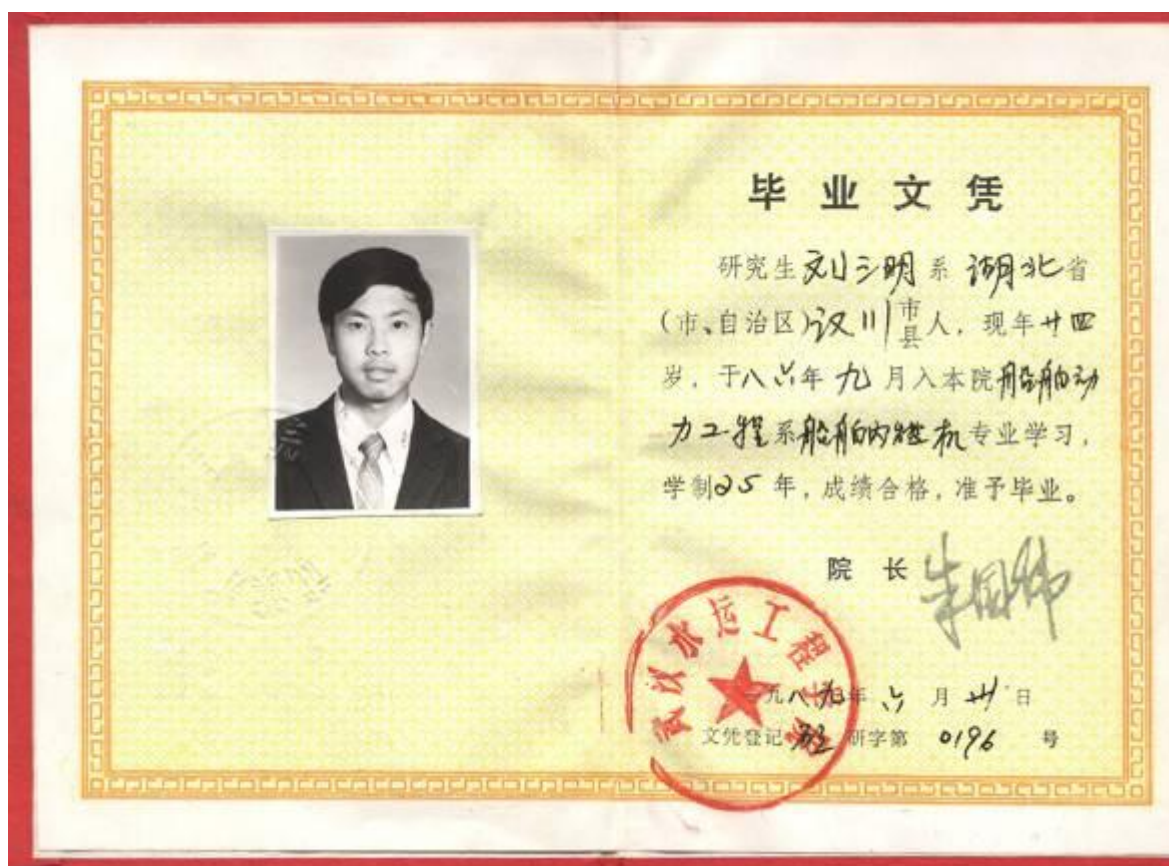 毕业文凭
研究生刘三明系湖北省
(市、自治区)汉川市县人，现年廿四
岁，于八六年九月入本院船舶动
力工程系船舶内燃机专业学习，
学制25年，成绩合格，准予毕业。
院长
武汉水运工程学院
一九八九年六月卅日
文凭登记 研字第0196号